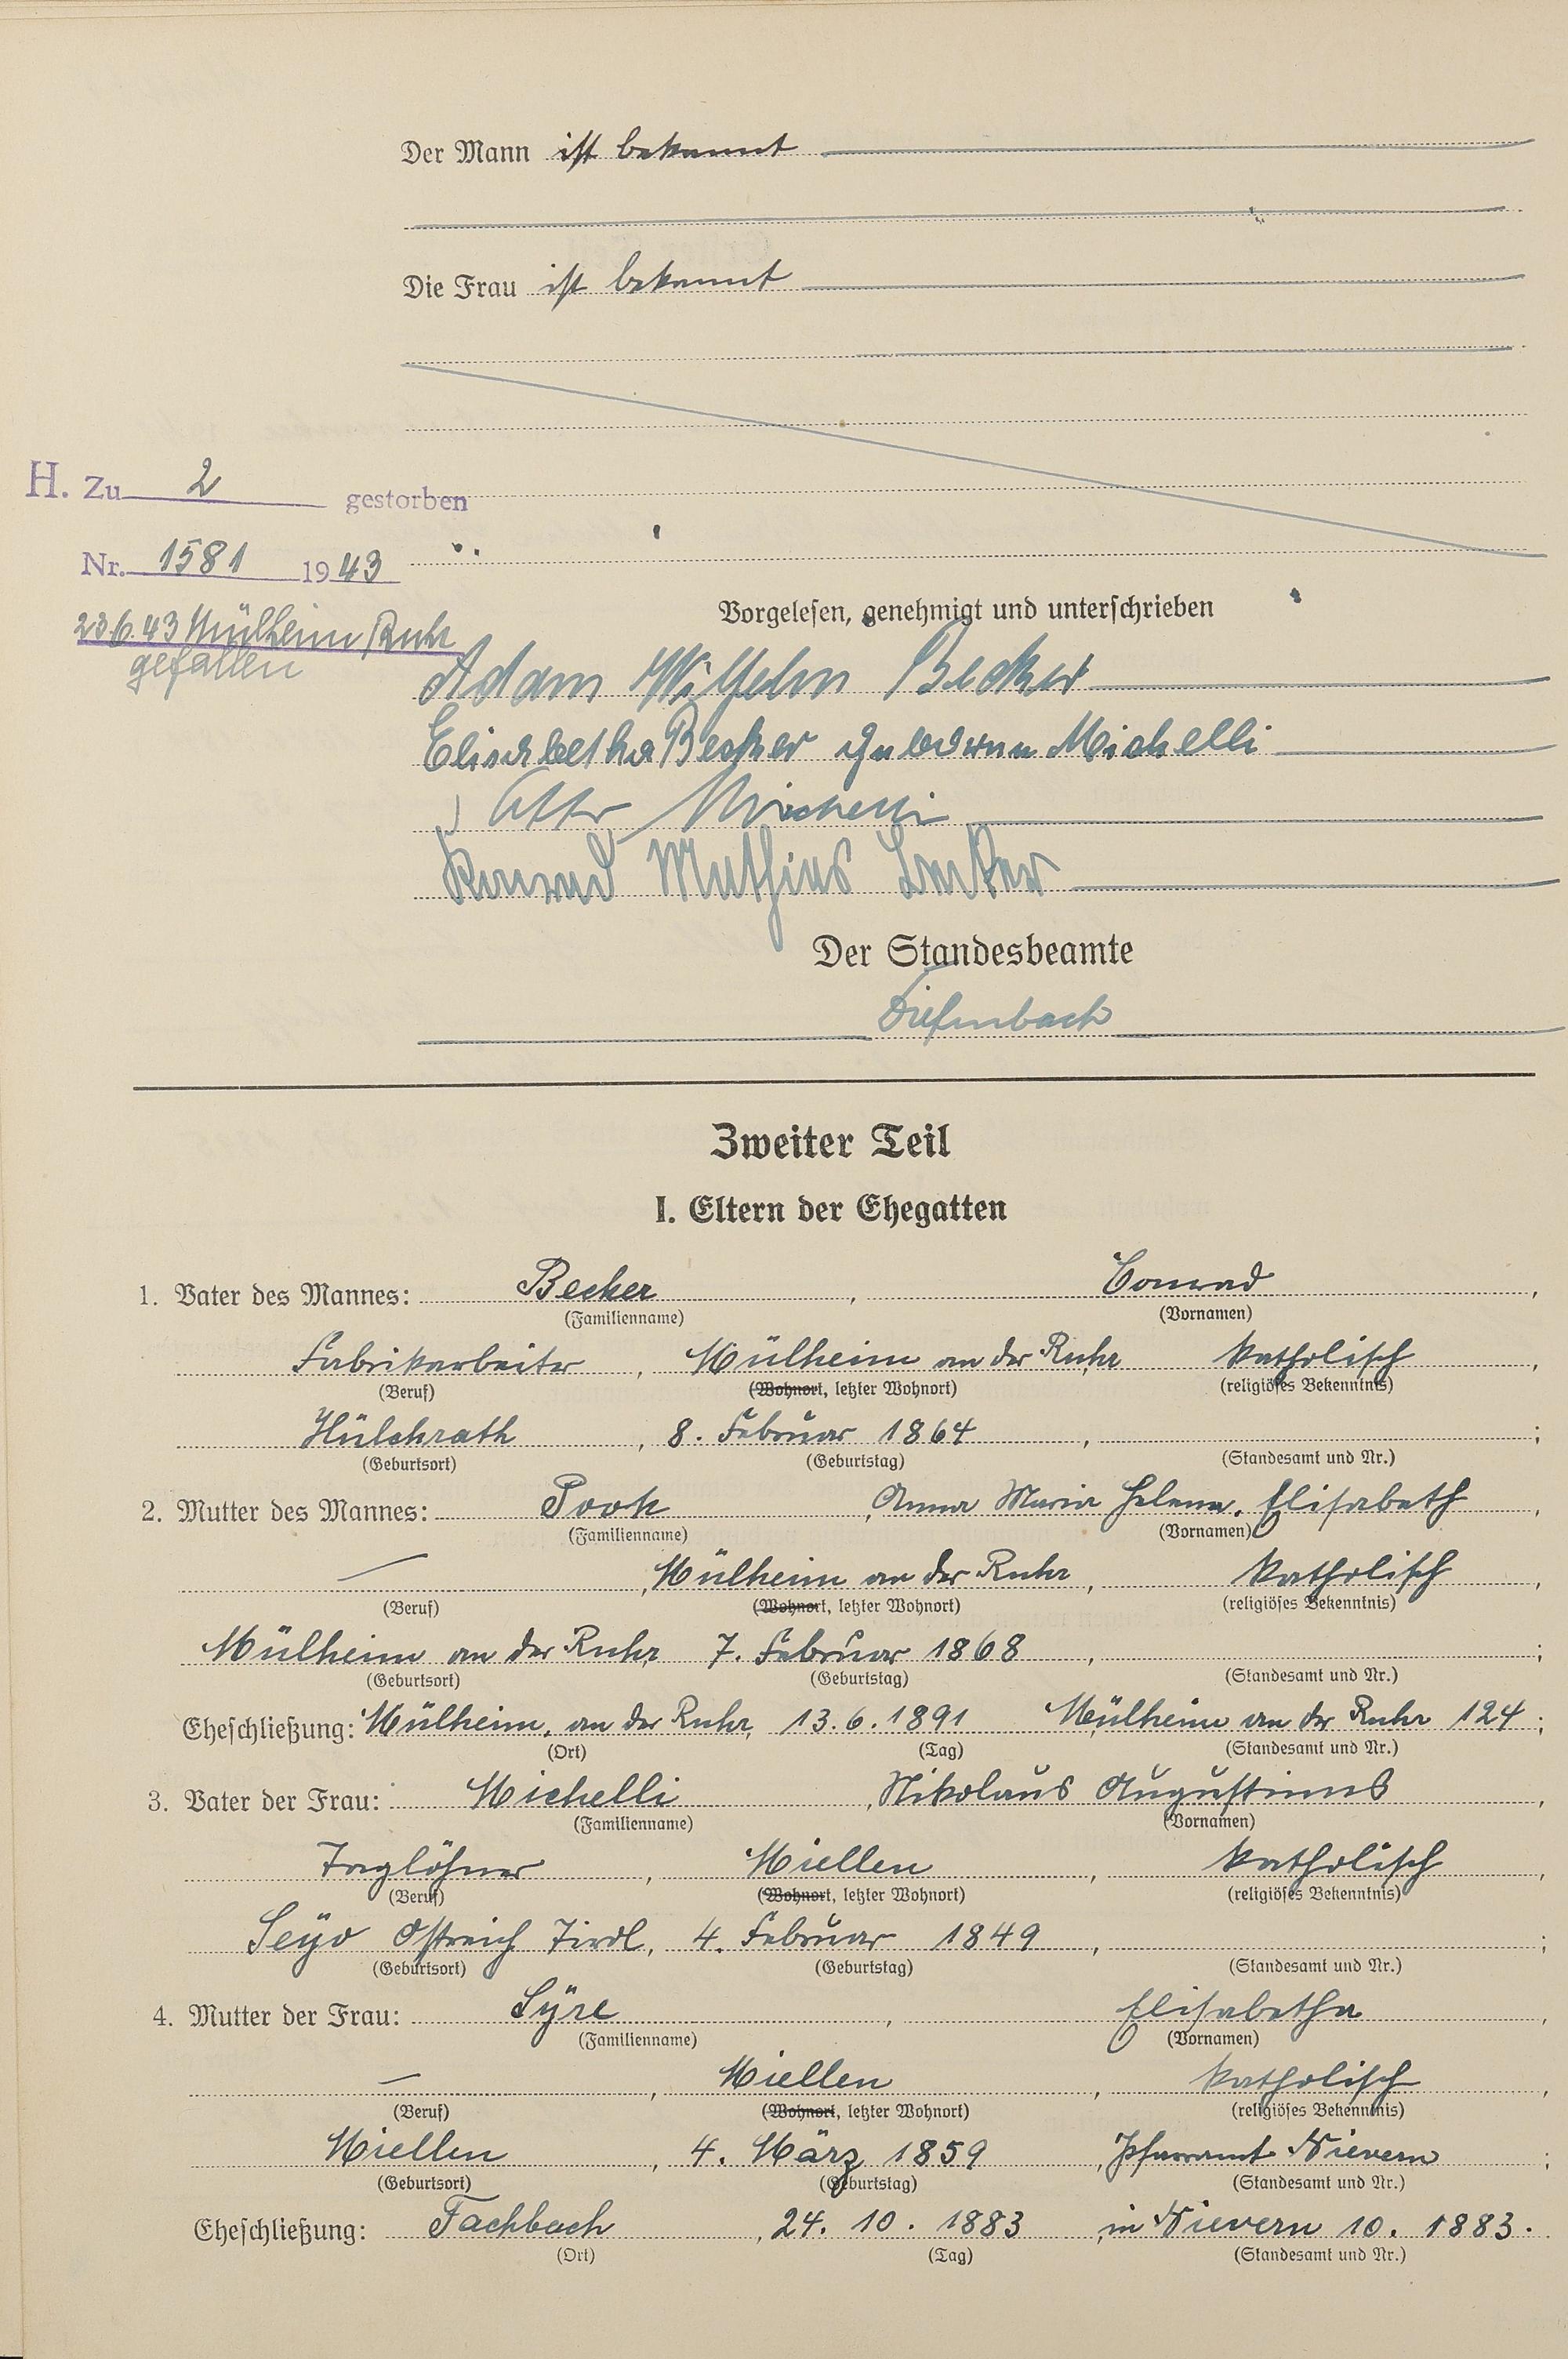 Der Mann ist bekannt
Die Frau ist bekannt
H. Zu 2 gestorben
Nr. 1581 1943
23.6.43 Mülheim Ruhr
gefallen
Vorgelesen, genehmigt und unterschrieben
Adam Wilhelm Becker
Elisabetha Becker geborene Michelli
Otto Michelli
Konrad Mathias Becker
Der Standesbeamte
Diefenbach
Zweiter Teil
I. Eltern der Ehegatten
1. Vater des Mannes: Becker, Conrad,
(Familienname) (Vornamen)
Fabrikarbeiter, Mülheim an der Ruhr katholisch,
(Beruf) (Wohnort, letzter Wohnort) (religiöses Bekenntnis)
Hülchrath, 8. Februar 1864, ;
(Geburtsort) (Geburtstag) (Standesamt und Nr.)
2. Mutter des Mannes: Pook, Anna Maria Helena, Elisabeth,
(Familienname) (Vornamen)
—, Mülheim an der Ruhr, katholisch,
(Beruf) (Wohnort, letzter Wohnort) (religiöses Bekenntnis)
Mülheim an der Ruhr 7. Februar 1868, ;
(Geburtsort) (Geburtstag) (Standesamt und Nr.)
Eheschließung: Mülheim, an der Ruhr, 13.6.1891 Mülheim an der Ruhr 124;
(Ort) (Tag) (Standesamt und Nr.)
3. Vater der Frau: Michelli, Nikolaus Augustinus,
(Familienname) (Vornamen)
Taglöhner, Miellen, katholisch,
(Beruf) (Wohnort, letzter Wohnort) (religiöses Bekenntnis)
Seyo Östreich Tirol, 4. Februar 1849, ;
(Geburtsort) (Geburtstag) (Standesamt und Nr.)
4. Mutter der Frau: Syre, Elisabetha,
(Familienname) (Vornamen)
—, Miellen, katholisch,
(Beruf) (Wohnort, letzter Wohnort) (religiöses Bekenntnis)
Miellen, 4. März 1859, Pfarramt Nievern;
(Geburtsort) (Geburtstag) (Standesamt und Nr.)
Eheschließung: Fachbach, 24. 10. 1883, in Nievern 10. 1883.
(Ort) (Tag) (Standesamt und Nr.)